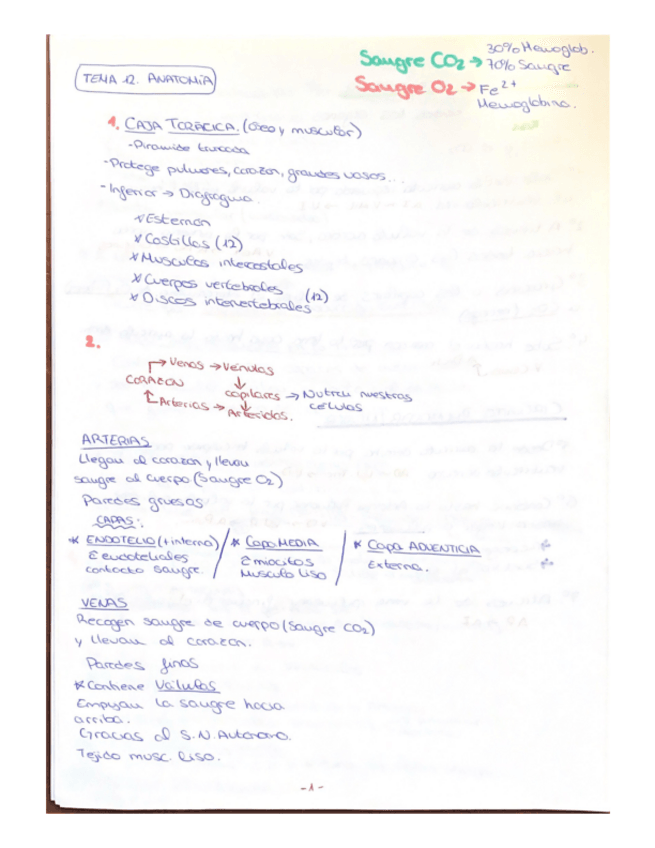 TEMA 12. ANATOMÍA
Sangre CO2 → 30% Hemoglob.
70% Sangre
Sangre O2 → Fe2+
Hemoglobina.
1. CAJA TORÁCICA. (óseo y muscular)
-Piramide truncada
-Protege pulmones, corazón, grandes vasos...
-Inferior → Diafragma.
* Esternón
* Costillas (12)
* Musculos intercostales
* Cuerpos vertebrales
* Discos intervertebrales (12)
2.
→ Venas → Vénulas
CORAZON ↓
capilares → Nutren nuestras
células
Arterias → Arteriolas.
ARTERIAS
Llegan al corazón y llevan
sangre al cuerpo (Sangre O2)
Paredes gruesas
CAPAS:
* ENDOTELIO (+interna) / * Capa MEDIA / * Capa ADVENTICIA
endoteliales miocitos Externa.
contacto sangre. Musculo liso
VENAS
Recogen sangre de cuerpo (sangre CO2)
y llevan al corazón.
Paredes finas
* Contiene Válvulas
Empujan la sangre hacia
arriba.
Gracias al S.N. Autónomo.
Tejido musc. liso.
-1-